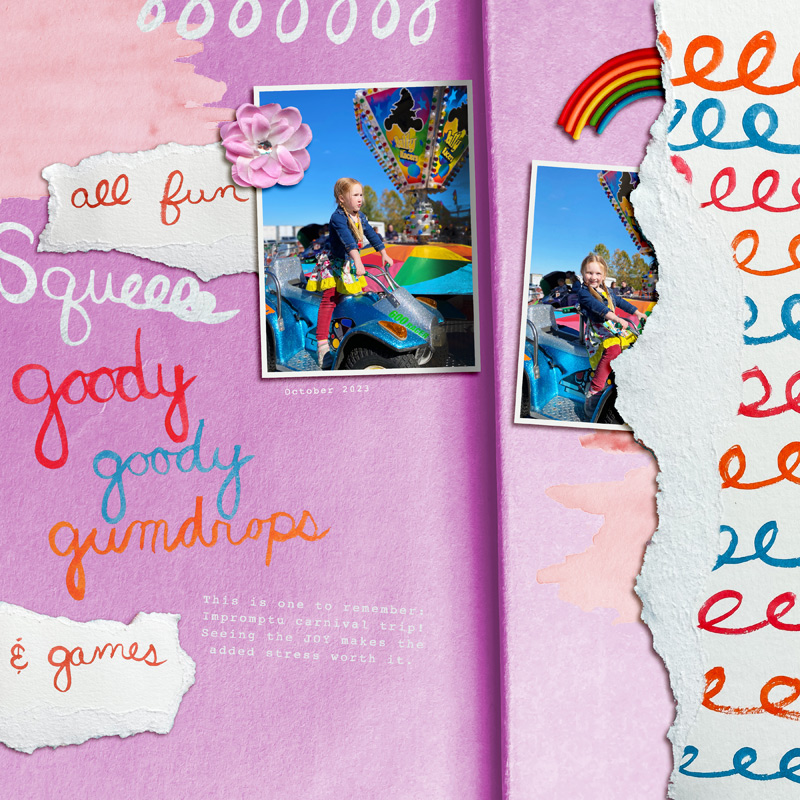 all fun
Squeeee
goody
goody
gumdrops
October 2023
This is one to remember;
Impromptu carnival trip!
Seeing the JOY makes the
added stress worth it.
& games